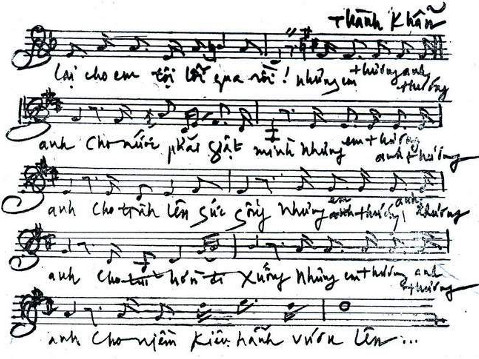 Thành Khẩn
lại cho em tội lỗi qua rồi! nhưng em thương anh thương
anh cho nước phải giật mình nhưng em thương anh thương
anh cho tràn lên sức sống nhưng em thương anh thương
anh cho xuống nhưng em thương anh thương
anh cho niềm kiêu hãnh vươn lên...